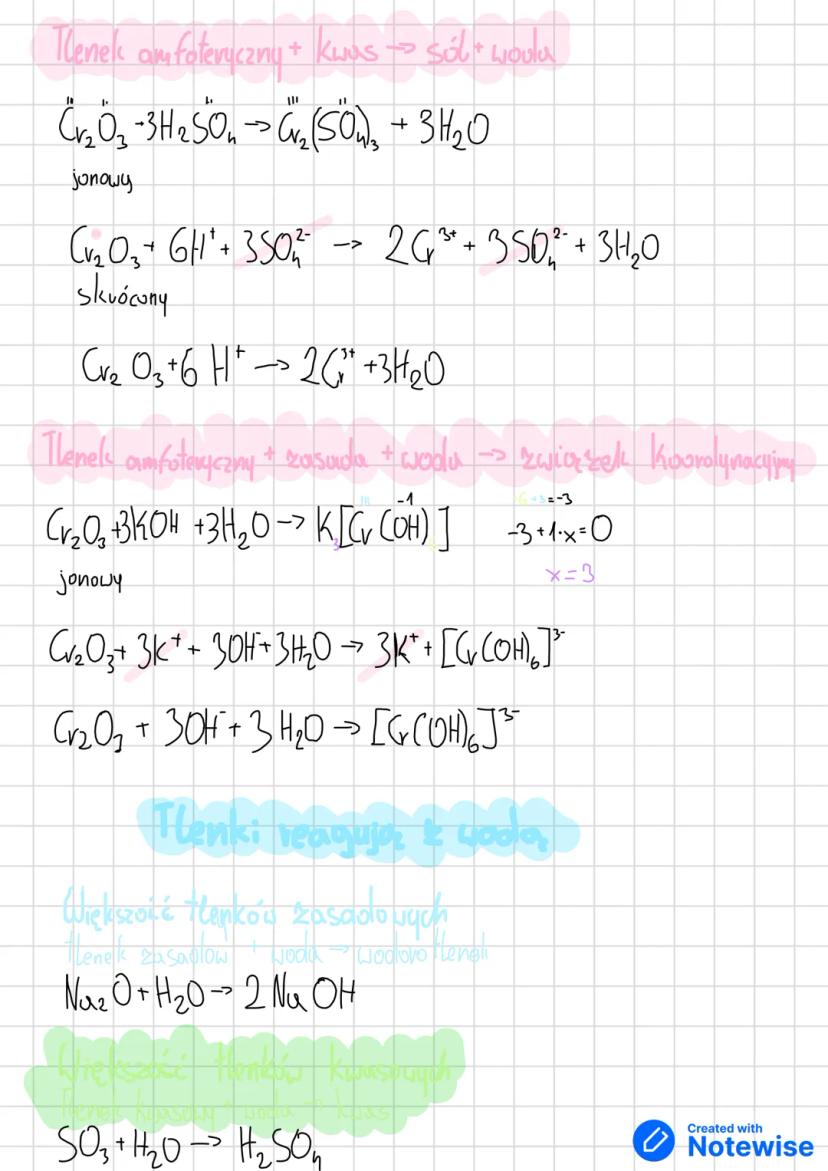 Tlenek amfoteryczny + kwas → sól + woda
Cr₂O₃ + 3H₂SO₄ → Cr₂(SO₄)₃ + 3H₂O
jonowy
Cr₂O₃ + 6H⁺ + 3SO₄²⁻ → 2Cr³⁺ + 3SO₄²⁻ + 3H₂O
skrócony
Cr₂O₃ + 6H⁺ → 2Cr³⁺ + 3H₂O
Tlenek amfoteryczny + zasada + woda → związek koordynacyjny
III -1 -6 +3 = -3
Cr₂O₃ + 3KOH + 3H₂O → K₃[Cr(OH)₆] -3+1·x=0
jonowy x=3
Cr₂O₃ + 3K⁺ + 3OH⁻ + 3H₂O → 3K⁺ + [Cr(OH)₆]³⁻
Cr₂O₃ + 3OH⁻ + 3H₂O → [Cr(OH)₆]³⁻
Tlenki reagują z wodą
Większość tlenków zasadowych
tlenek zasadow + woda → wodorotlenek
Na₂O + H₂O → 2NaOH
Większość tlenków kwasowych
Tlenek kwasowy + woda → kwas
SO₃ + H₂O → H₂SO₄
Created with
Notewise